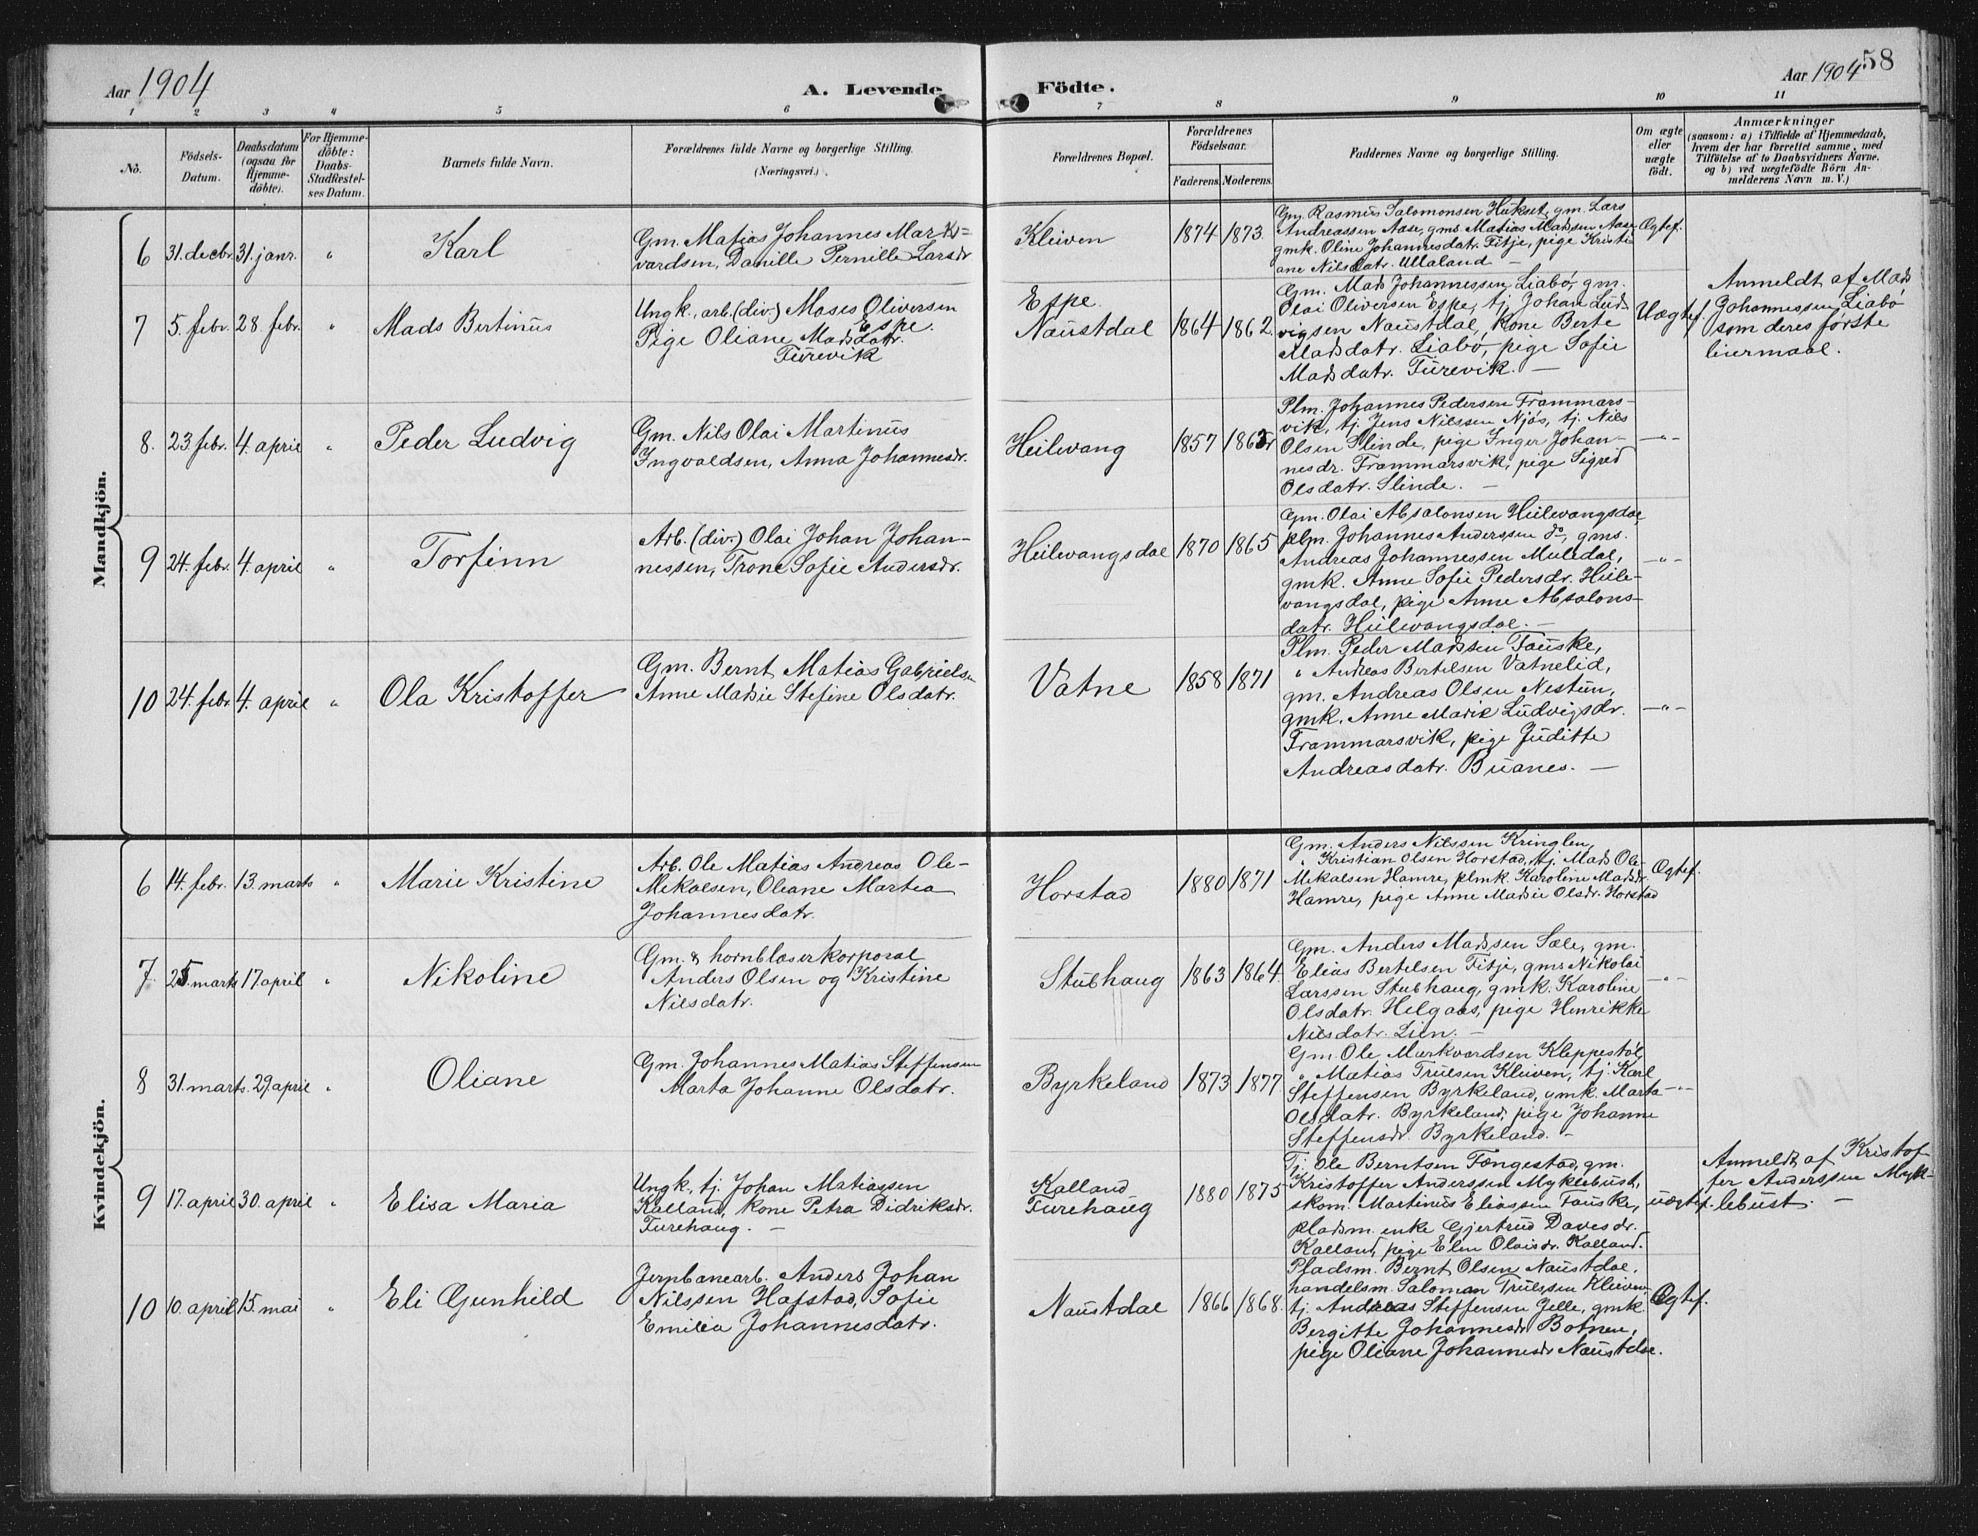 Aar 1904
A. Levende
Födte.
Aar 1904
58
1 2 3 4 5 6 7 8 9 10 11
No.
Födsels-
Datum.
Daabsdatum
(ogsaa for
Hjemme-
döbte).
For Hjemme-
döbte:
Daabs-
Stadfæstel-
ses Datum.
Barnets fulde Navn.
Forældrenes fulde Navne og borgerlige Stilling.
(Næringsvei.)
Forældrenes Bopæl.
Forældrenes
Födselsaar.
Faderens. Moderens.
Faddernes Navne og borgerlige Stilling.
Om ægte
eller
uægte
födt.
Anmærkninger
(saasom: a) i Tilfælde af Hjemmedaab,
hvem der har forrettet samme, med
Tilföielse af to Daabsvidners Navne,
og b) ved uægtefödte Börn An-
melderens Navn m. V.)
Mandkjön.
6 31. decbr. 31. janr. " Karl
Gm. Matias Johannes Mark-
vardsen, Danille Pernille Larsdr
Kleiven 1874 1873
Gm. Rasmus Salomonsen Hukset, gm. Lars
Andreassen Aase, gms. Matias Madsen Aase
gmk. Oline Johannesdatr. Fitje, pige Kristi
ane Nilsdatr. Ullaland —
Ægtef.
7 5. febr. 28. febr. " Mads Bertinus
Ungk., arb. (div.) Moses Oliversen
Espe.
Pige Oliane Madsdatr.
Furevik
Espe.
Naustdal 1864 1862
Gm. Mads Johannessen Liabø, gm.
Olai Oliversen Espe, tj. Johan Lud
vigsen Naustdal, kone Berte
Madsdatr. Liabø, pige Sofie
Madsdatr. Furevik. —
Uægtef.
Anmeldt af Mads
Johannessen Liabø
som deres første
leiermaal.
8. 23. febr. 4. april " Peder Ludvig
Gm. Nils Olai Martinus
Ingvaldsen, Anna Johannesdr.
Heilevang 1857
Plm. Johannes Pedersen Frammars-
vik, tj. Jens Nilssen Njøs, tj. Nils
Olsen Slinde, pige Inger Johan-
nesdr. Frammarsvik, pige Sigrid
Olsdatr. Slinde. —
—"—
9 24. febr. 4. april " Torfinn
Arb. (div.) Olai Johan Johan-
nessen, Trone Sofie Andersdr.
Heilevangsdal 1870 1865
Gm. Olai Absalonsen Heilevangsdal
plm. Johannes Anderssen do, gms.
Andreas Johannessen Muldal,
gmk. Anne Sofie Pedersdr. Heile-
vangsdal, pige Anne Absalons-
datr. Heilevangsdal. —
—"—
10 24. febr. 4. april " Ola Kristoffer
Gm. Bernt Matias Gabrielsen
Anne Marie Stefine Olsdatr.
Vatne 1858 1871
Plm. Peder Madssen Fauske,
" Andreas Bertelsen Vatnelid,
gm. Andreas Olsen Nestun,
gmk. Anne Marie Ludvigsdr.
Frammarsvik, pige Juditte
Andreasdatr. Buanes. —
—"—
Kvindekjön.
6 14. febr. 13. marts " Marie Kristine
Arb. Ole Matias Andreas Ole-
Mikalsen, Oliane Martea
Johannesdatr.
Horstad 1880 1871
Gm. Anders Nilssen Kringlen,
" Kristian Olsen Horstad, tj. Mads Ole
Mikalsen Hamre, plmk. Karoline Madsdr.
Hamre, pige Anne Marie Olsdr. Horstad
Ægtef.
7 25. marts 17. april " Nikoline
Gm. & hornblæserkorporal
Anders Olsen og Kristine
Nilsdatr.
Stubhaug 1863 1864
Gm. Anders Madssen Sæle, gm.
Elias Bertelsen Fitje, gms. Nikolai
Larssen Stubhaug, gmk. Karoline
Olsdatr. Helgaas, pige Henrikke
Nilsdatr. Lien. —
—"—
8 31. marts. 29. april " Oliane
Gm. Johannes Matias Steffensen
Marta Johanne Olsdatr.
Byrkeland 1873 1877
Gm. Ole Markvardsen Kleppestøl,
" Matias Trulsen Kleiven, tj. Karl
Steffensen Byrkeland, gmk. Marta
Olsdatr. Byrkeland, pige Johanne
Steffensdr. Byrkeland. —
—"—
9 17. april 30. april " Elisa Maria
Ungk., tj. Johan Matiassen
Kalland, kone Petra Didriksdr.
Furehaug. —
Kalland
Furehaug 1880 1875
Tj. Ole Berntsen Fængestad, gm.
Kristoffer Anderssen Myklebust,
skom. Martinus Eliassen Fauske,
pladsm. enke Gjertrud Davesdr.
Kalland, pige Elen Olaisdr. Kalland.
uægtef.
Anmeldt af Kristof
fer Anderssen Myk-
lebust. —
10 10. april 15. mai " Eli Gunhild
Jernbanearb. Anders Johan
Nilssen Hafstad, Sofie
Emilia Johannesdatr.
Naustdal 1866 1868.
Pladsm. Bernt Olsen Naustdal,
handelsm. Salomon Trulssen Kleiven
tj. Andreas Steffensen Jelle, gmk.
Bergitte Johannesdr Botnen,
pige Oliane Johannesdr Naustdal.
Ægtef.